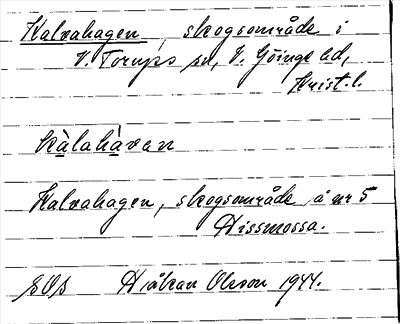 Kalvahagen, skogsområde i
V. Torups sn, V. Göinge hd,
Krist. l.
kàlahàvan
Kalvahagen, skogsområde å nr 5
Hissmossa.
Håkan Olsson 1944.